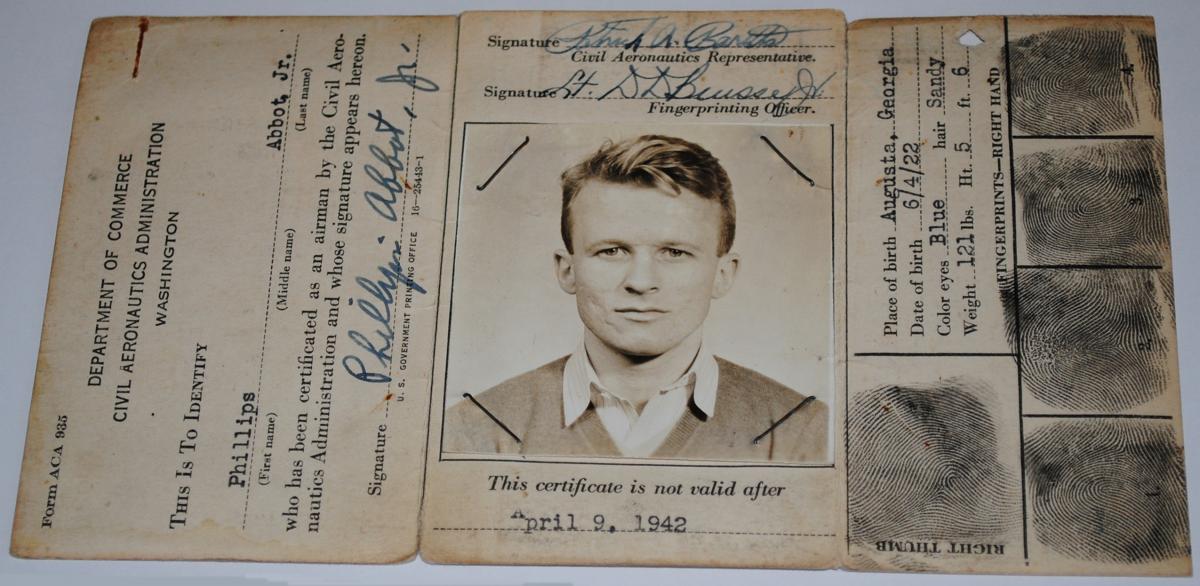 Form ACA 935
DEPARTMENT OF COMMERCE
CIVIL AERONAUTICS ADMINISTRATION
WASHINGTON
THIS IS TO IDENTIFY
Phillips Abbot, Jr.
(First name) (Middle name) (Last name)
who has been certificated as an airman by the Civil Aero-
nautics Administration and whose signature appears hereon.
Signature Phillips Abbot, Jr.
U. S. GOVERNMENT PRINTING OFFICE 16—25443-1
Signature
Civil Aeronautics Representative.
Signature Lt.
Fingerprinting Officer.
This certificate is not valid after
April 9, 1942
Place of birth Augusta, Georgia
Date of birth 6/4/22
Color eyes Blue hair Sandy
Weight 121 lbs. Ht. 5 ft. 6
FINGERPRINTS—RIGHT HAND
4.
3.
2.
1.
RIGHT THUMB